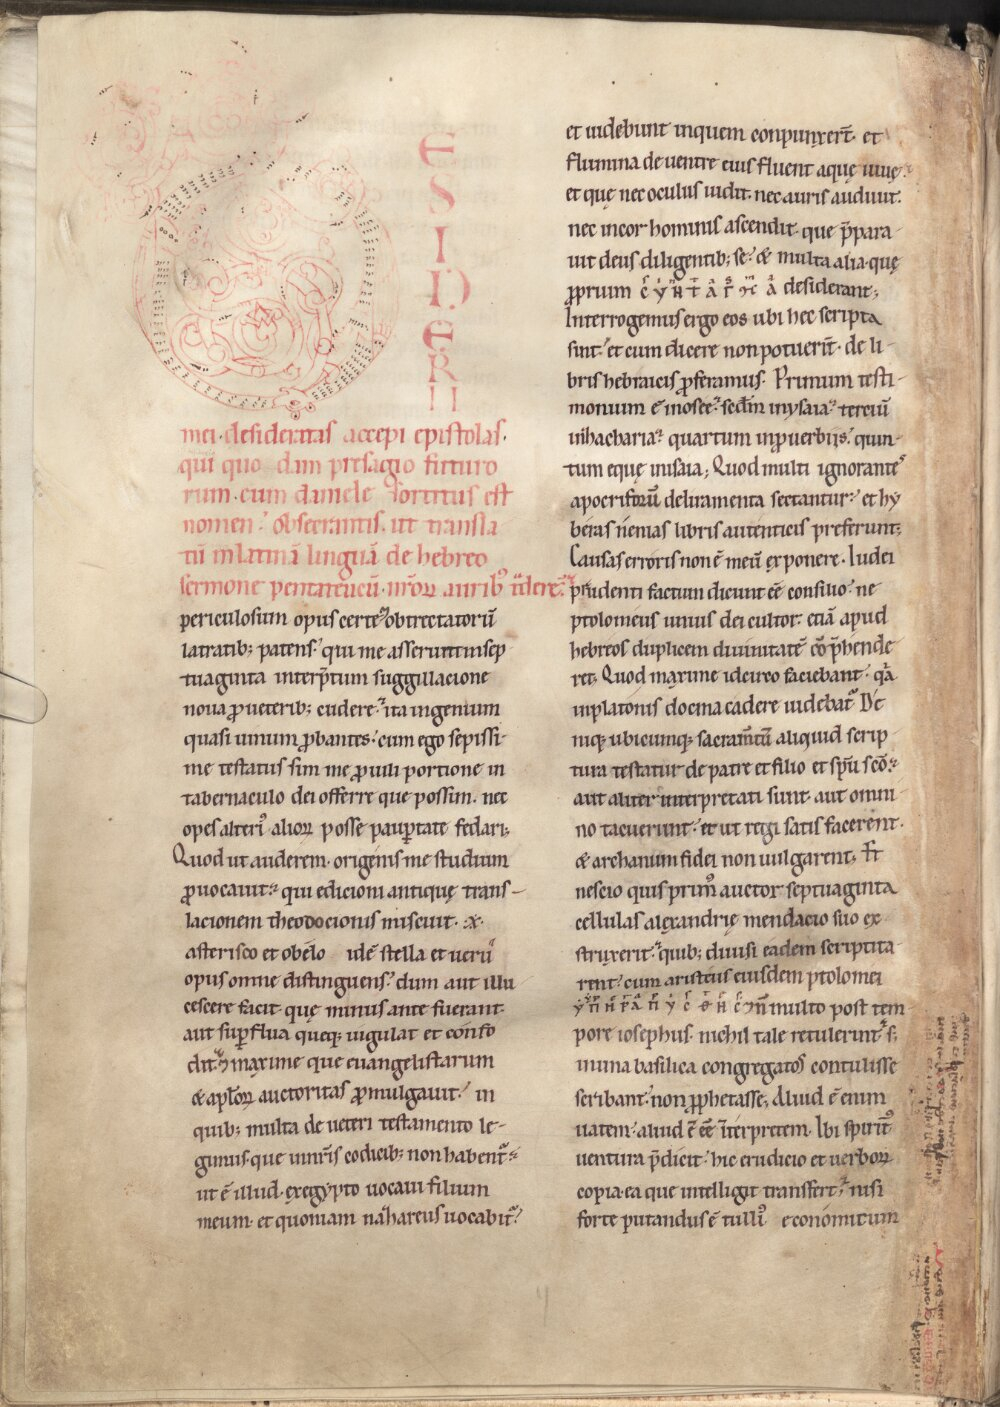 D
E
S
I
D
E
R
I
I
mei · desideratas accepi epistolas ·
qui quo dam presagio futuro
rum · cum daniele sortitus est
nomen · obsecrantis · ut transla
tū in latinā linguā de hebreo
sermone pentateucū · nr̄oꝝ auribꝰ tͣderē
periculosum opus certe · obtrectatorū
latratib; patens · qui me asserunt in sep
tuaginta interp̄tum suggillacione
noua ꝓ ueterib; cudere · ita ingenium
quasi uinum ꝓbantes · cum ego sepissi-
me testatus sim me ꝓ uili portione in
tabernaculo dei offerre que possim · nec
opes alteriꝰ alioꝝ posse paup̱tate fedari;
Quod ut auderem · origenis me studium
ꝓuocauit · qui edicioni antiquę trans-
lacionem theodocionis miscuit · ※ ·
asterisco et obelo idē stella et ueru
opus omne distinguens · dum aut illu
cescere facit quę minus ante fuerant ·
aut sup̱flua queq; iugulat et confo
dit · ⁊ maxime que euangelistarum
& apl̄oꝝ auctoritas ꝓmulgauit · in
quib; multa de ueteri testamento le-
gimus · que in nr̄is codicib; non habent᷑
ut ē illud · ex egypto uocaui filium
meum · et quoniam nazareus uocabit᷑
et uidebunt in quem conpunxer̄t · et
flumina de uentre eius fluent aquę uiuę ·
et quę nec oculus uidit · nec auris audiuit ·
nec in cor hominis ascendit · que p̄para
uit deus diligentib; se · & multa alia quę
ꝓprium CYNTAΓMA desiderant;
Interrogemus ergo eos ubi hec scripta
sint · et cum dicere non potuerīt · de li-
bris hebraicis ꝓferamus · Primum testi-
monium ē in osee · sec̄dm in ysaia · terciū
in zacharia · quartum in prouerbiis · quin-
tum eque in isaia; Quod multi ignorantes
apocriforū deliramenta sectantur · et hy
beras nenias libris autenticis preferunt;
Causas erroris non ē meū exponere · Iudei
prudenti factum dicunt eē consilio · ne
ptolomeus unius dei cultor · etiā apud
hebreos duplicem diuinitatē cōp̄hende
ret; Quod maxime idcirco faciebant · qͣa
in platonis docma cadere uidebat᷑ Dc̄
niq; ubicumq; sacram̄tū aliquid scrip-
tura testatur de patre et filio et sp̄u sc̄o ·
aut aliter interpretati sunt · aut omni-
no tacuerunt · et ut regi satis facerent ·
& archanum fidei non uulgarent; Et
nescio quis prim᷒ auctor septuaginta
cellulas alexandrię mendacio suo ex
struxerit · quib; diuisi eadem scriptita-
rent · cum aristeus eiusdem ptolomei
YΠHPAΠYCΘHC · ⁊ n̄ multo post tem
pore iosephus · nichil tale retulerunt · s;
in una basilica congregatos contulisse
scribant · non ꝓphetasse; Aliud ē enim
uatem · aliud ē eē īterpretem · Ibi spirit᷒
uentura p̄dicit · hic erudicio et uerboꝝ
copia ea que intelligit transfert · nisi
forte putandus ē tulliꝰ economicum